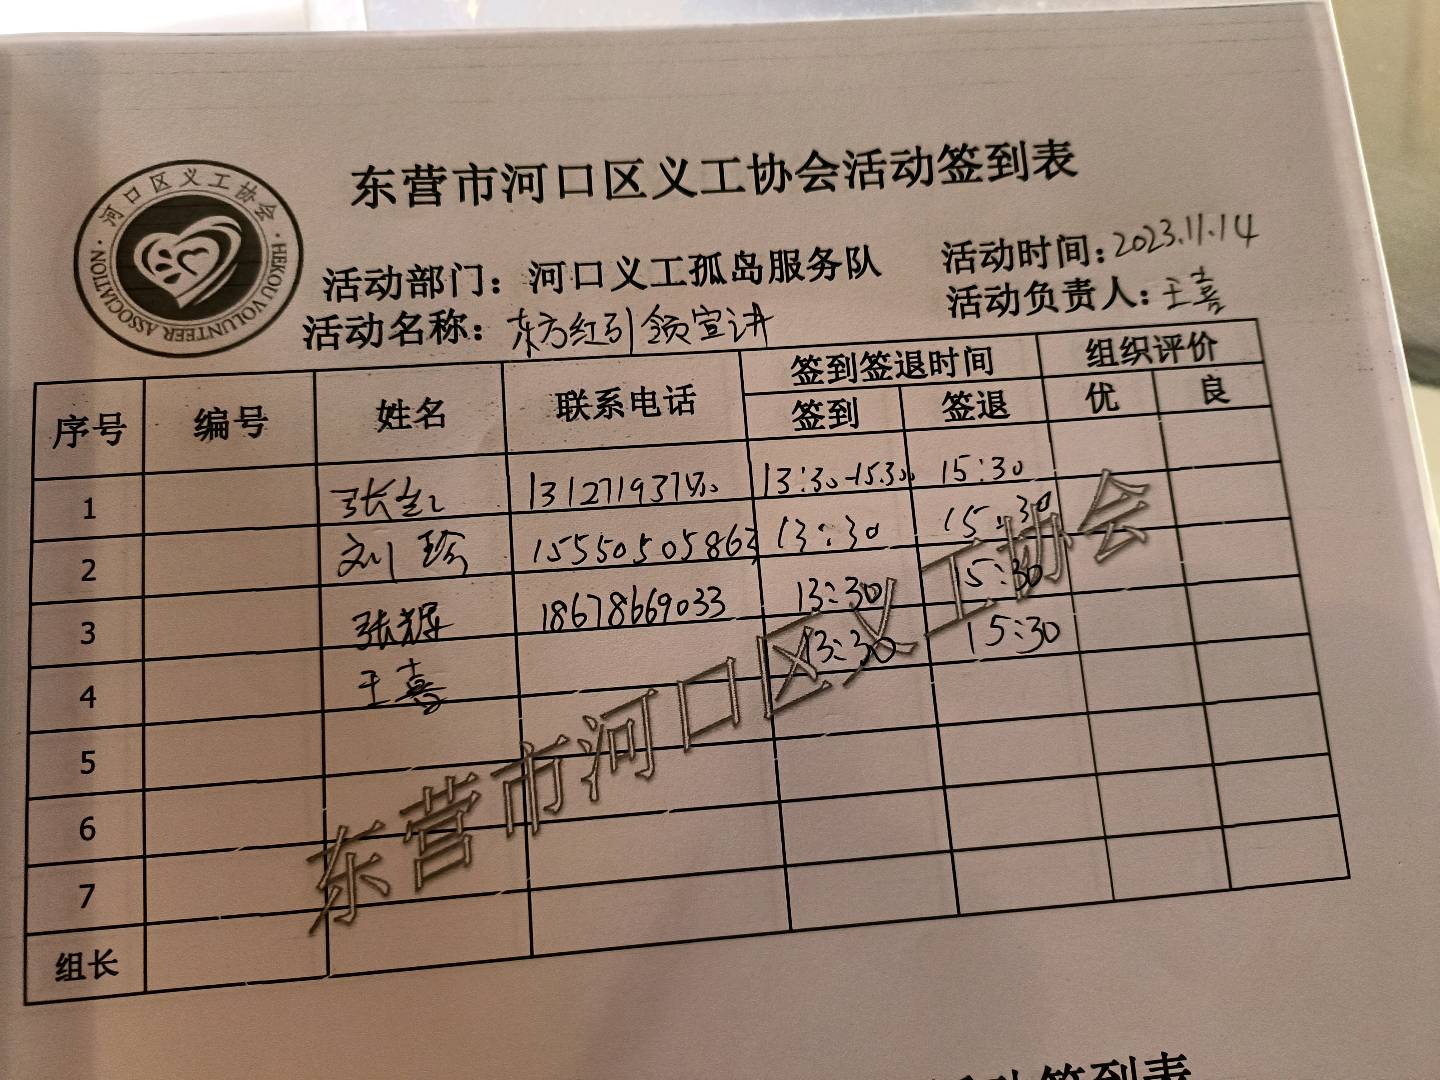 东营市河口区义工协会活动签到表
河口区义工协会
HEKOU VOLUNTEER ASSOCIATION
活动部门：河口义工孤岛服务队 活动时间：2023.11.14
活动名称：东方红引领宣讲 活动负责人：王喜
序号 编号 姓名 联系电话 签到签退时间 组织评价
签到 签退 优 良
1 张 13:30-15:30 15:30
2 刘珍 15550505863 13:30 15:30
3 张辉 18678669033 13:30 15:30
4 王喜 13:30 15:30
5
6
7
组长
东营市河口区义工协会
活动签到表